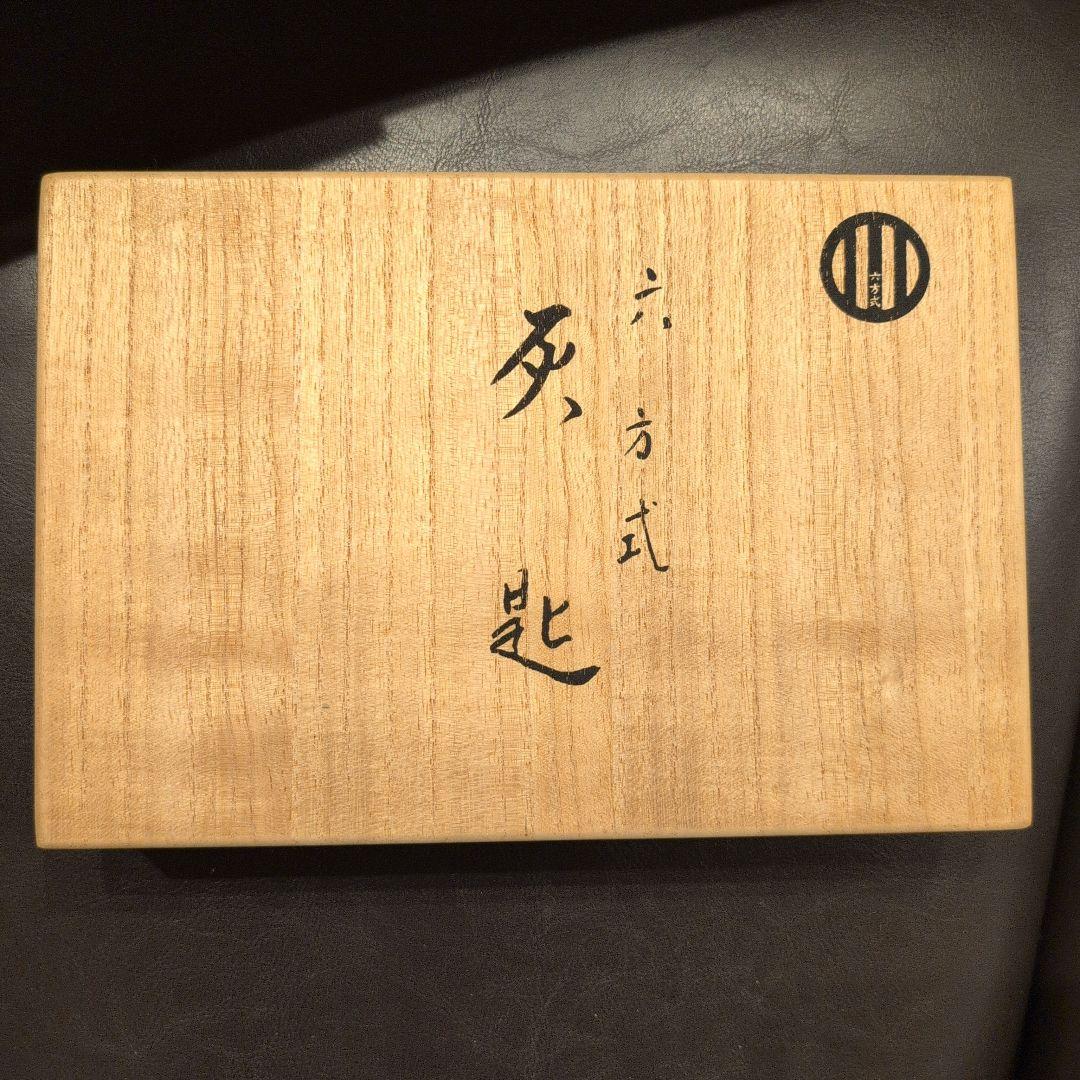 六方式
六方式
灰匙